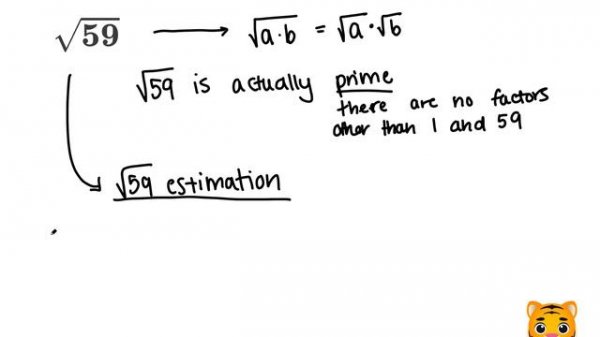 √59 ⟶ √a·b = √a·√b
√59 is actually prime
there are no factors
other than 1 and 59
√59 estimation